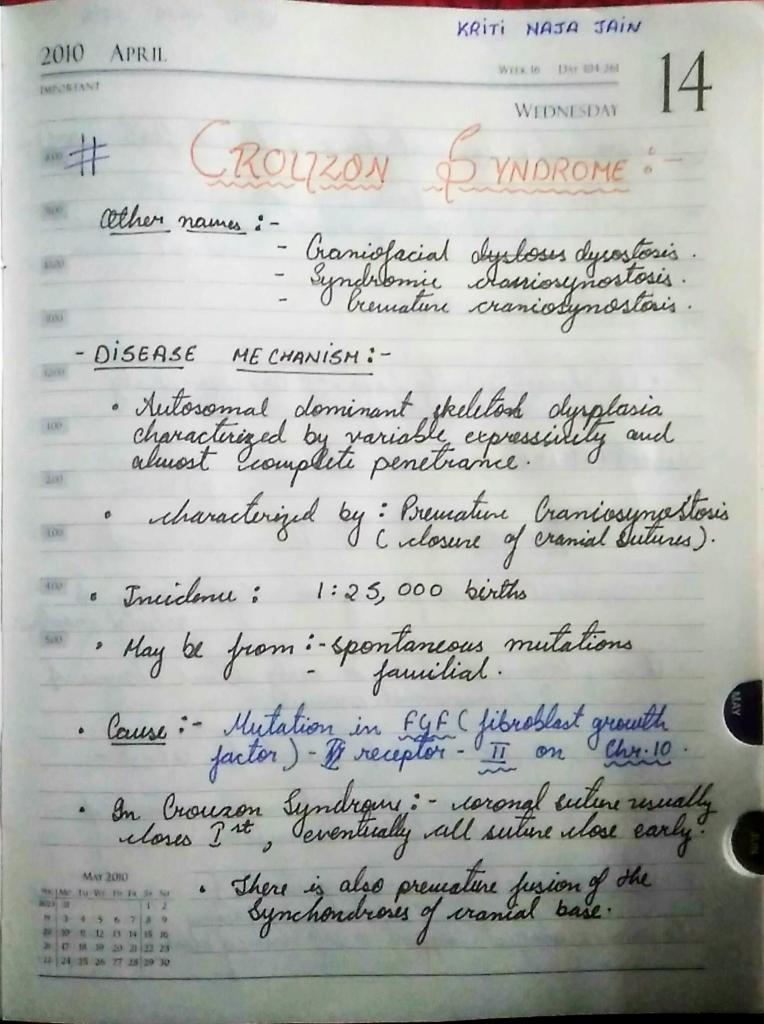 KRITI NAJA JAIN
2010 APRIL
WEEK 16 DAY 104-261
14
IMPORTANT
WEDNESDAY
# CROUZON SYNDROME :-
Other names :-
- Craniofacial dysloses dysostosis.
- Syndromic craniosynostosis.
- Premature craniosynostosis.
- DISEASE MECHANISM :-
• Autosomal dominant skeletal dysplasia
characterized by variable expressivity and
almost complete penetrance.
• characterized by : Premature Craniosynostosis
(closure of cranial sutures).
• Incidence : 1:25,000 births
• May be from :- spontaneous mutations
- familial.
• Cause :- Mutation in FGF (fibroblast growth
factor) - receptor - II on Chr.10.
• In Crouzon Syndrome :- coronal suture usually
closes Ist, eventually all suture close early.
• There is also premature fusion of the
Synchondroses of cranial base.
MAY
JUN
MAY 2010
Mo Tu We Th Fr Sa Su
31 1 2
3 4 5 6 7 8 9
10 11 12 13 14 15 16
17 18 19 20 21 22 23
24 25 26 27 28 29 30